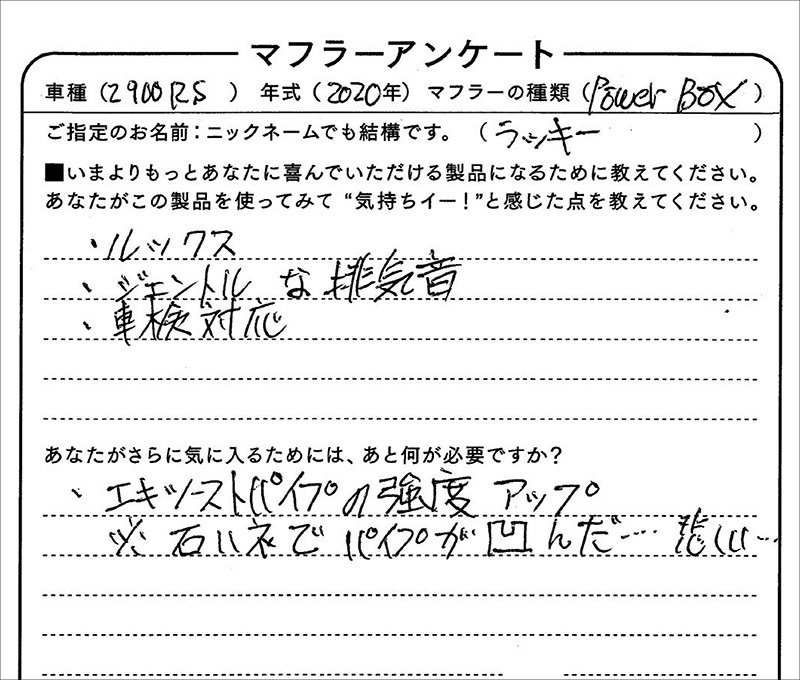 マフラーアンケート
車種（Z900RS） 年式（2020年） マフラーの種類（Power BOX）
ご指定のお名前：ニックネームでも結構です。（ラッキー）
■いまよりもっとあなたに喜んでいただける製品になるために教えてください。
あなたがこの製品を使ってみて“気持ちイー！”と感じた点を教えてください。
・ルックス
・ジェントルな排気音
・車検対応
あなたがさらに気に入るためには、あと何が必要ですか？
・エキゾーストパイプの強度アップ
※石ハネでパイプが凹んだ…悲しい…